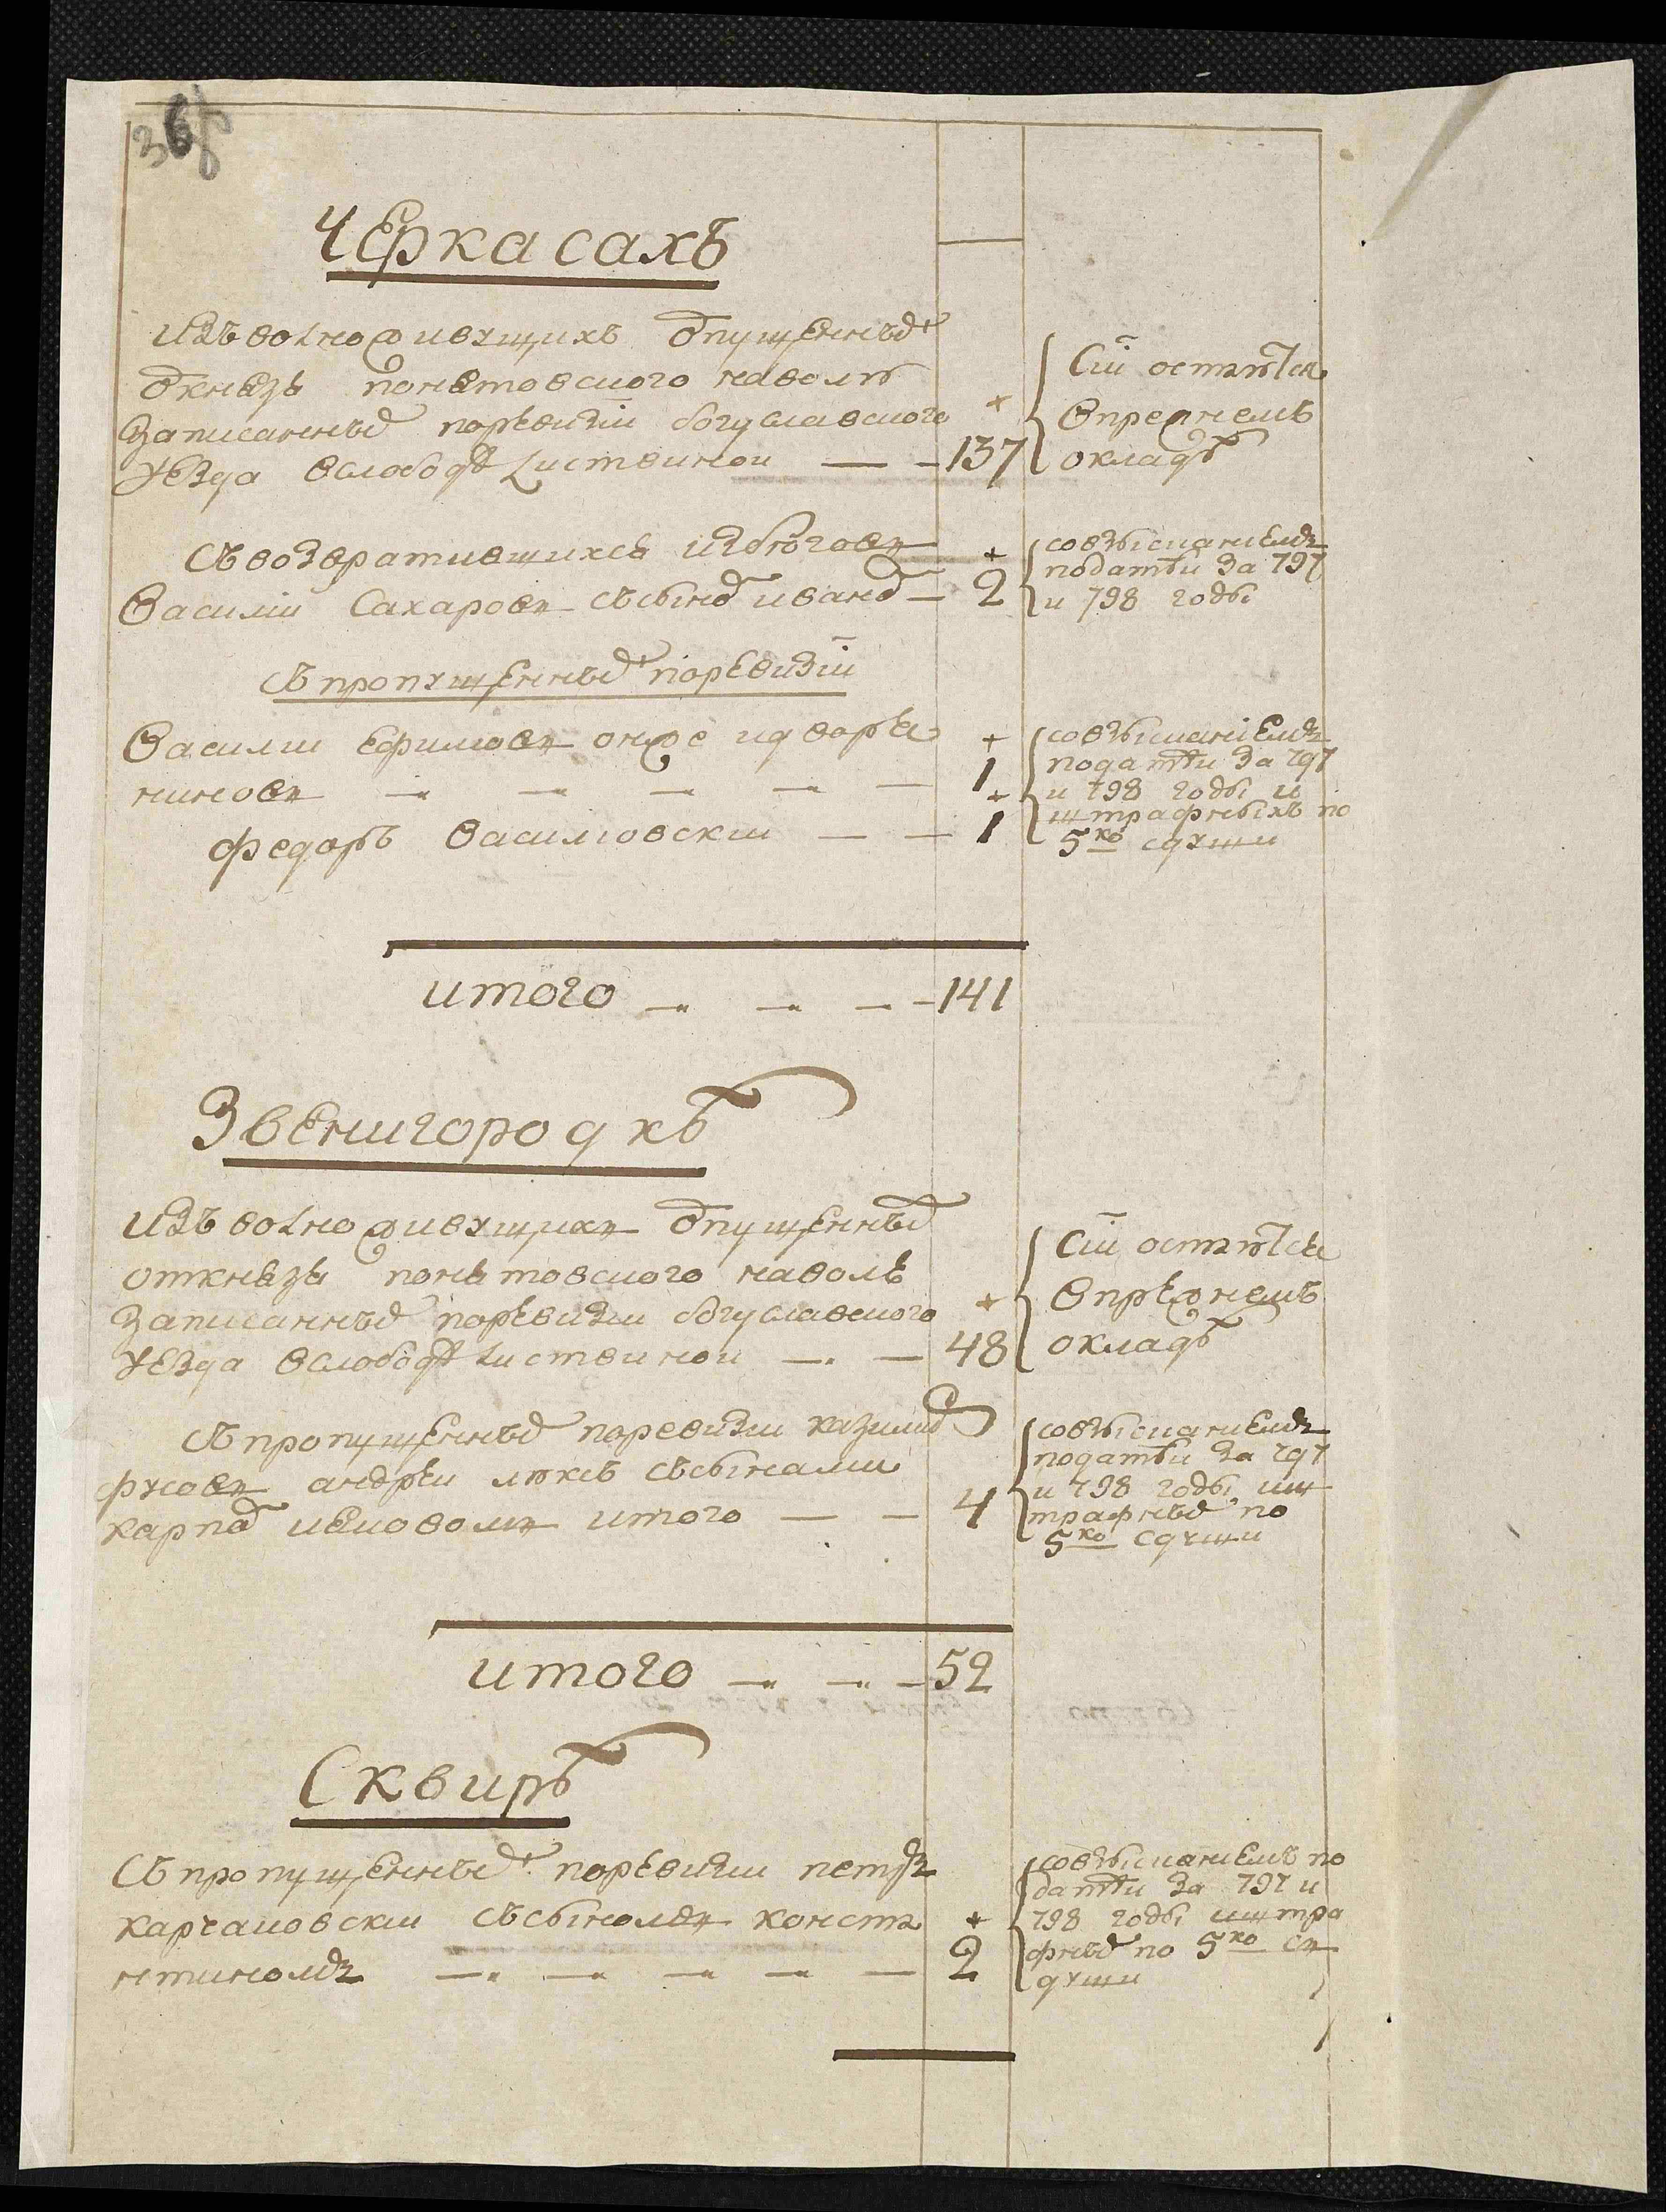 368
Черкасахъ
изъ волноживущихъ отпущенныхъ
от князя понятовского наволю
записанныхъ поревизіи богуславского
уезда вслободѣ Листвиной — — 137
Сіи остаются
впрежнемъ
окладѣ
съвозвратившихся избеговъ
Василій Сахаровъ съсыномъ иваномъ — 2
совзысканиемъ
податѣй за 797
и 798 годы
съпропущенныхъ поревизіи
Василий Ефимовъ онже идворя
ниновъ — — — — — 1
федоръ Василювский — — 1
совзысканиемъ
податѣй за 797
и 798 годы и
штрафныхъ по
5ко сдуши
итого — — — 141
Звенигородкѣ
изъ волноживущихъ отпущенныхъ
открнязя понятовского наволю
записанныхъ поревизии богуславского
уезда вслободѣ Листвиной — — 48
Сіи остаются
впрежнемъ
окладѣ
съпропущенныхъ поревизии
андрей съсынами
карпомъ итого — — 4
совзысканиемъ
податѣй за 797
и 798 годы иш
трафныхъ по
5ко сдуши
итого — — — 52
Сквирѣ
съпропущенныхъ поревизии петръ
карчановский съсыномъ конста
нтиномъ — — — — — 2
совзысканиемъ по
датѣй за 797 и
798 годы иштра
фныхъ по 5ко съ
души